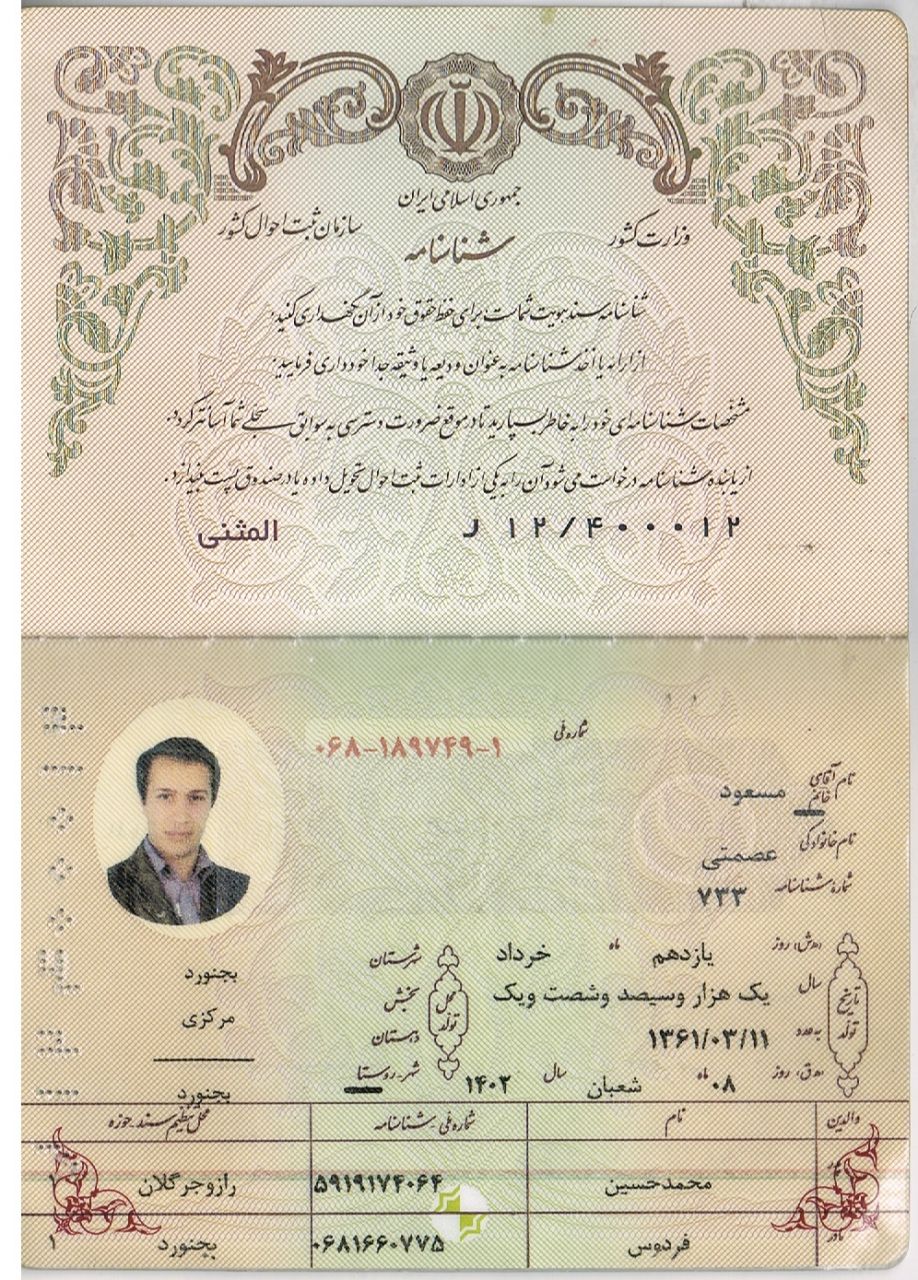 جمهوری اسلامی ایران
وزارت کشور
سازمان ثبت احوال کشور
شناسنامه
شناسنامه سند هویت شماست برای حفظ حقوق خود از آن نگهداری کنید.
از ارائه یا اخذ شناسنامه به عنوان ودیعه یا وثیقه جدا خودداری فرمایید.
مشخصات شناسنامه‌ای خود را به خاطر بسپارید تا در موقع ضرورت دسترسی به سوابق سجلی شما آسانتر گردد.
از یابنده شناسنامه درخواست می شود آن را به یکی از ادارات ثبت احوال تحویل داده یا در صندوق پست بیندازد.
ل ۱۲/۴۰۰۰۱۲
المثنی
شماره ملی ۰۶۸-۱۸۹۷۴۹-۱
نام آقای مسعود
خانم
نام خانوادگی عصمتی
شماره شناسنامه ۷۳۳
تاریخ تولد
(ه.ش) روز یازدهم ماه خرداد
سال یک هزار وسیصد وشصت ویک
به عدد ۱۳۶۱/۰۳/۱۱
(ه.ق) روز ۰۸ ماه شعبان سال ۱۴۰۲
محل تولد
شهرستان بجنورد
بخش مرکزی
دهستان
شهر-روستا بجنورد
والدین نام شماره ملی-شناسنامه محل تنظیم سند-حوزه
پدر محمدحسین ۵۹۱۹۱۷۴۰۶۴ رازوجرگلان ۱
مادر فردوس ۰۶۸۱۶۶۰۷۷۵ بجنورد ۱